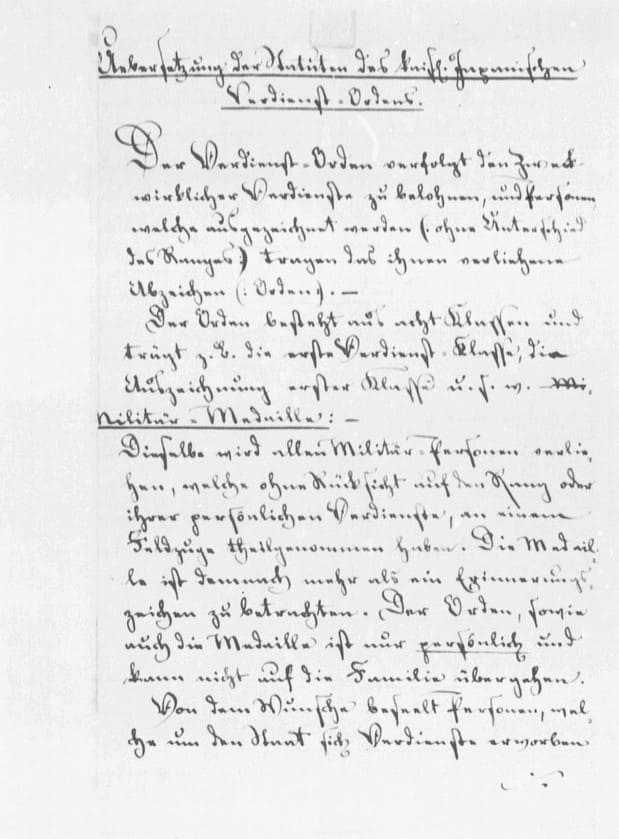 Uebersetzung der Statuten des Kaisl: Japanischen
Verdienst-Ordens.
Der Verdienst-Orden verfolgt den Zweck
wirklicher Verdienste zu belohnen, und Personen,
welche ausgezeichnet werden (: ohne Unterschied
des Ranges :) tragen das ihnen verliehene
Abzeichen (: Orden :). —
Der Orden besteht aus acht Klassen und
trägt z. B. die erste Verdienst-Klasse, die
Auszeichnung erster Klasse u. s. w. Mi-
Militär-Medaille: —
Dieselbe wird allen Militär-Personen verlie-
hen, welche ohne Rücksicht auf den Rang oder
ihrer persönlichen Verdienste, an einem
Feldzuge theilgenommen haben. Die Medail-
le ist demnach mehr als ein Erinnerungs-
zeichen zu betrachten. Der Orden, sowie
auch die Medaille ist nur persönlich und
kann nicht auf die Familie übergehen.
Von dem Wunsche beseelt Personen, wel-
che um den Staat sich Verdienste erworben